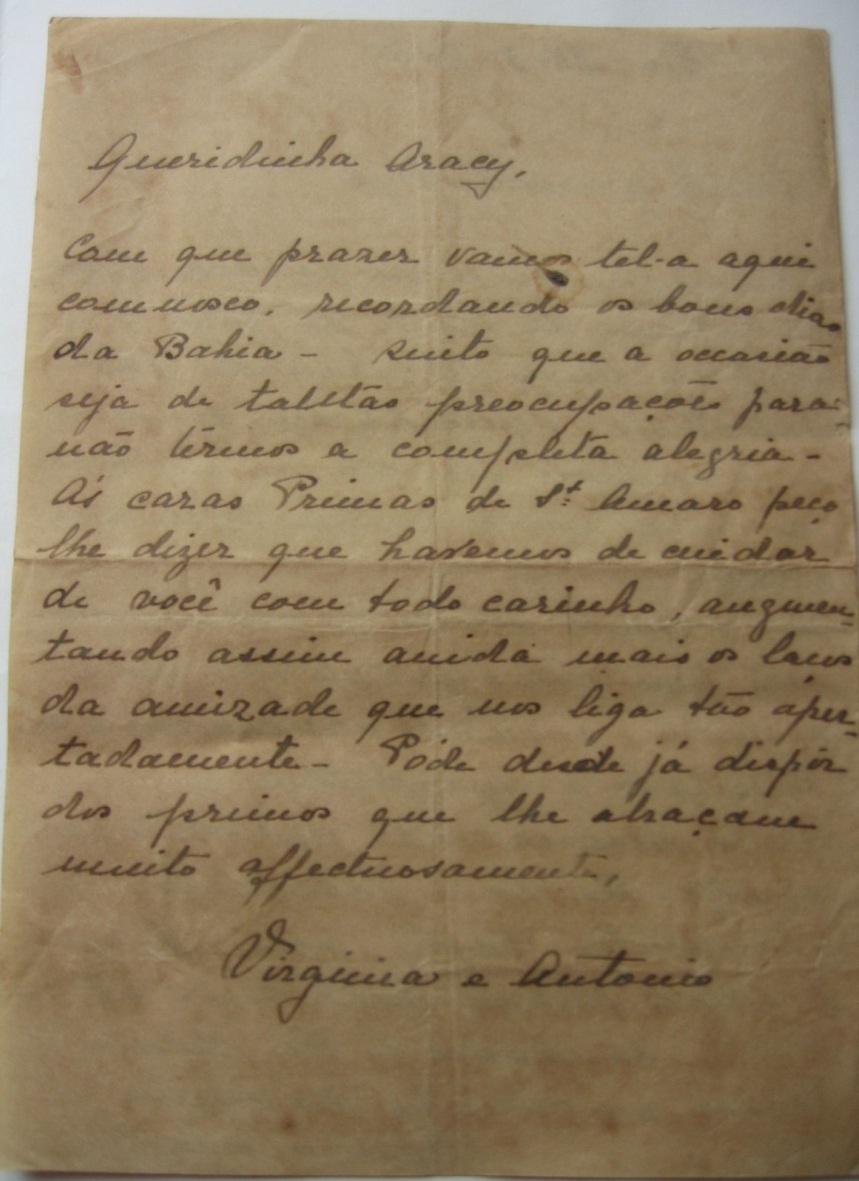 Queridinha Aracy,
Com que prazer vamos tel-a aqui
comnosco, recordando os bons dias
da Bahia - sinto que a occasião
seja de tal preocupações para
não têrmos a completa alegria -
Ás caras Primas de Sto Amaro peço
lhe dizer que havemos de cuidar
de você com todo carinho, augmen-
tando assim ainda mais os laços
da amizade que nos liga tão aper-
tadamente - Póde desde já dispôr
dos primos que lhe abraçam
muito affectuosamente,
Virginia e Antonio